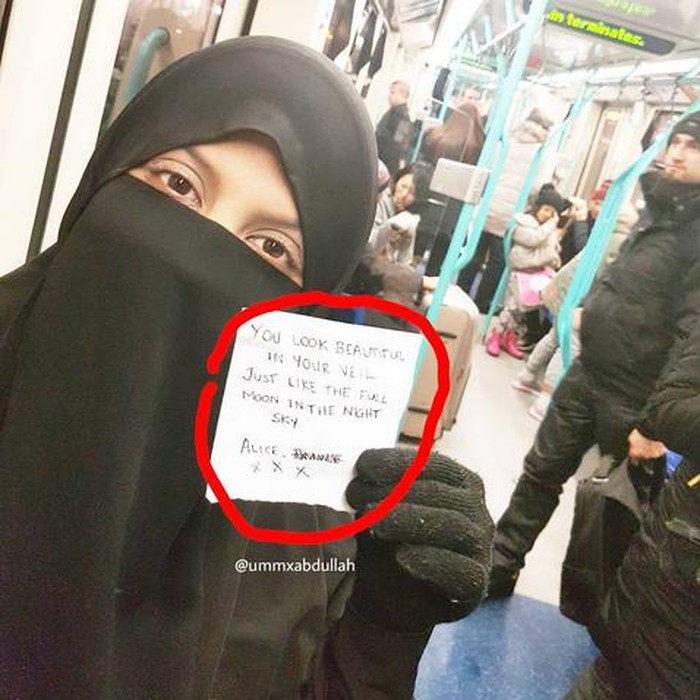 in terminates.
YOU LOOK BEAUTIFUL
IN YOUR VEIL
JUST LIKE THE FULL
MOON IN THE NIGHT
SKY
ALICE.
X X X
@ummxabdullah